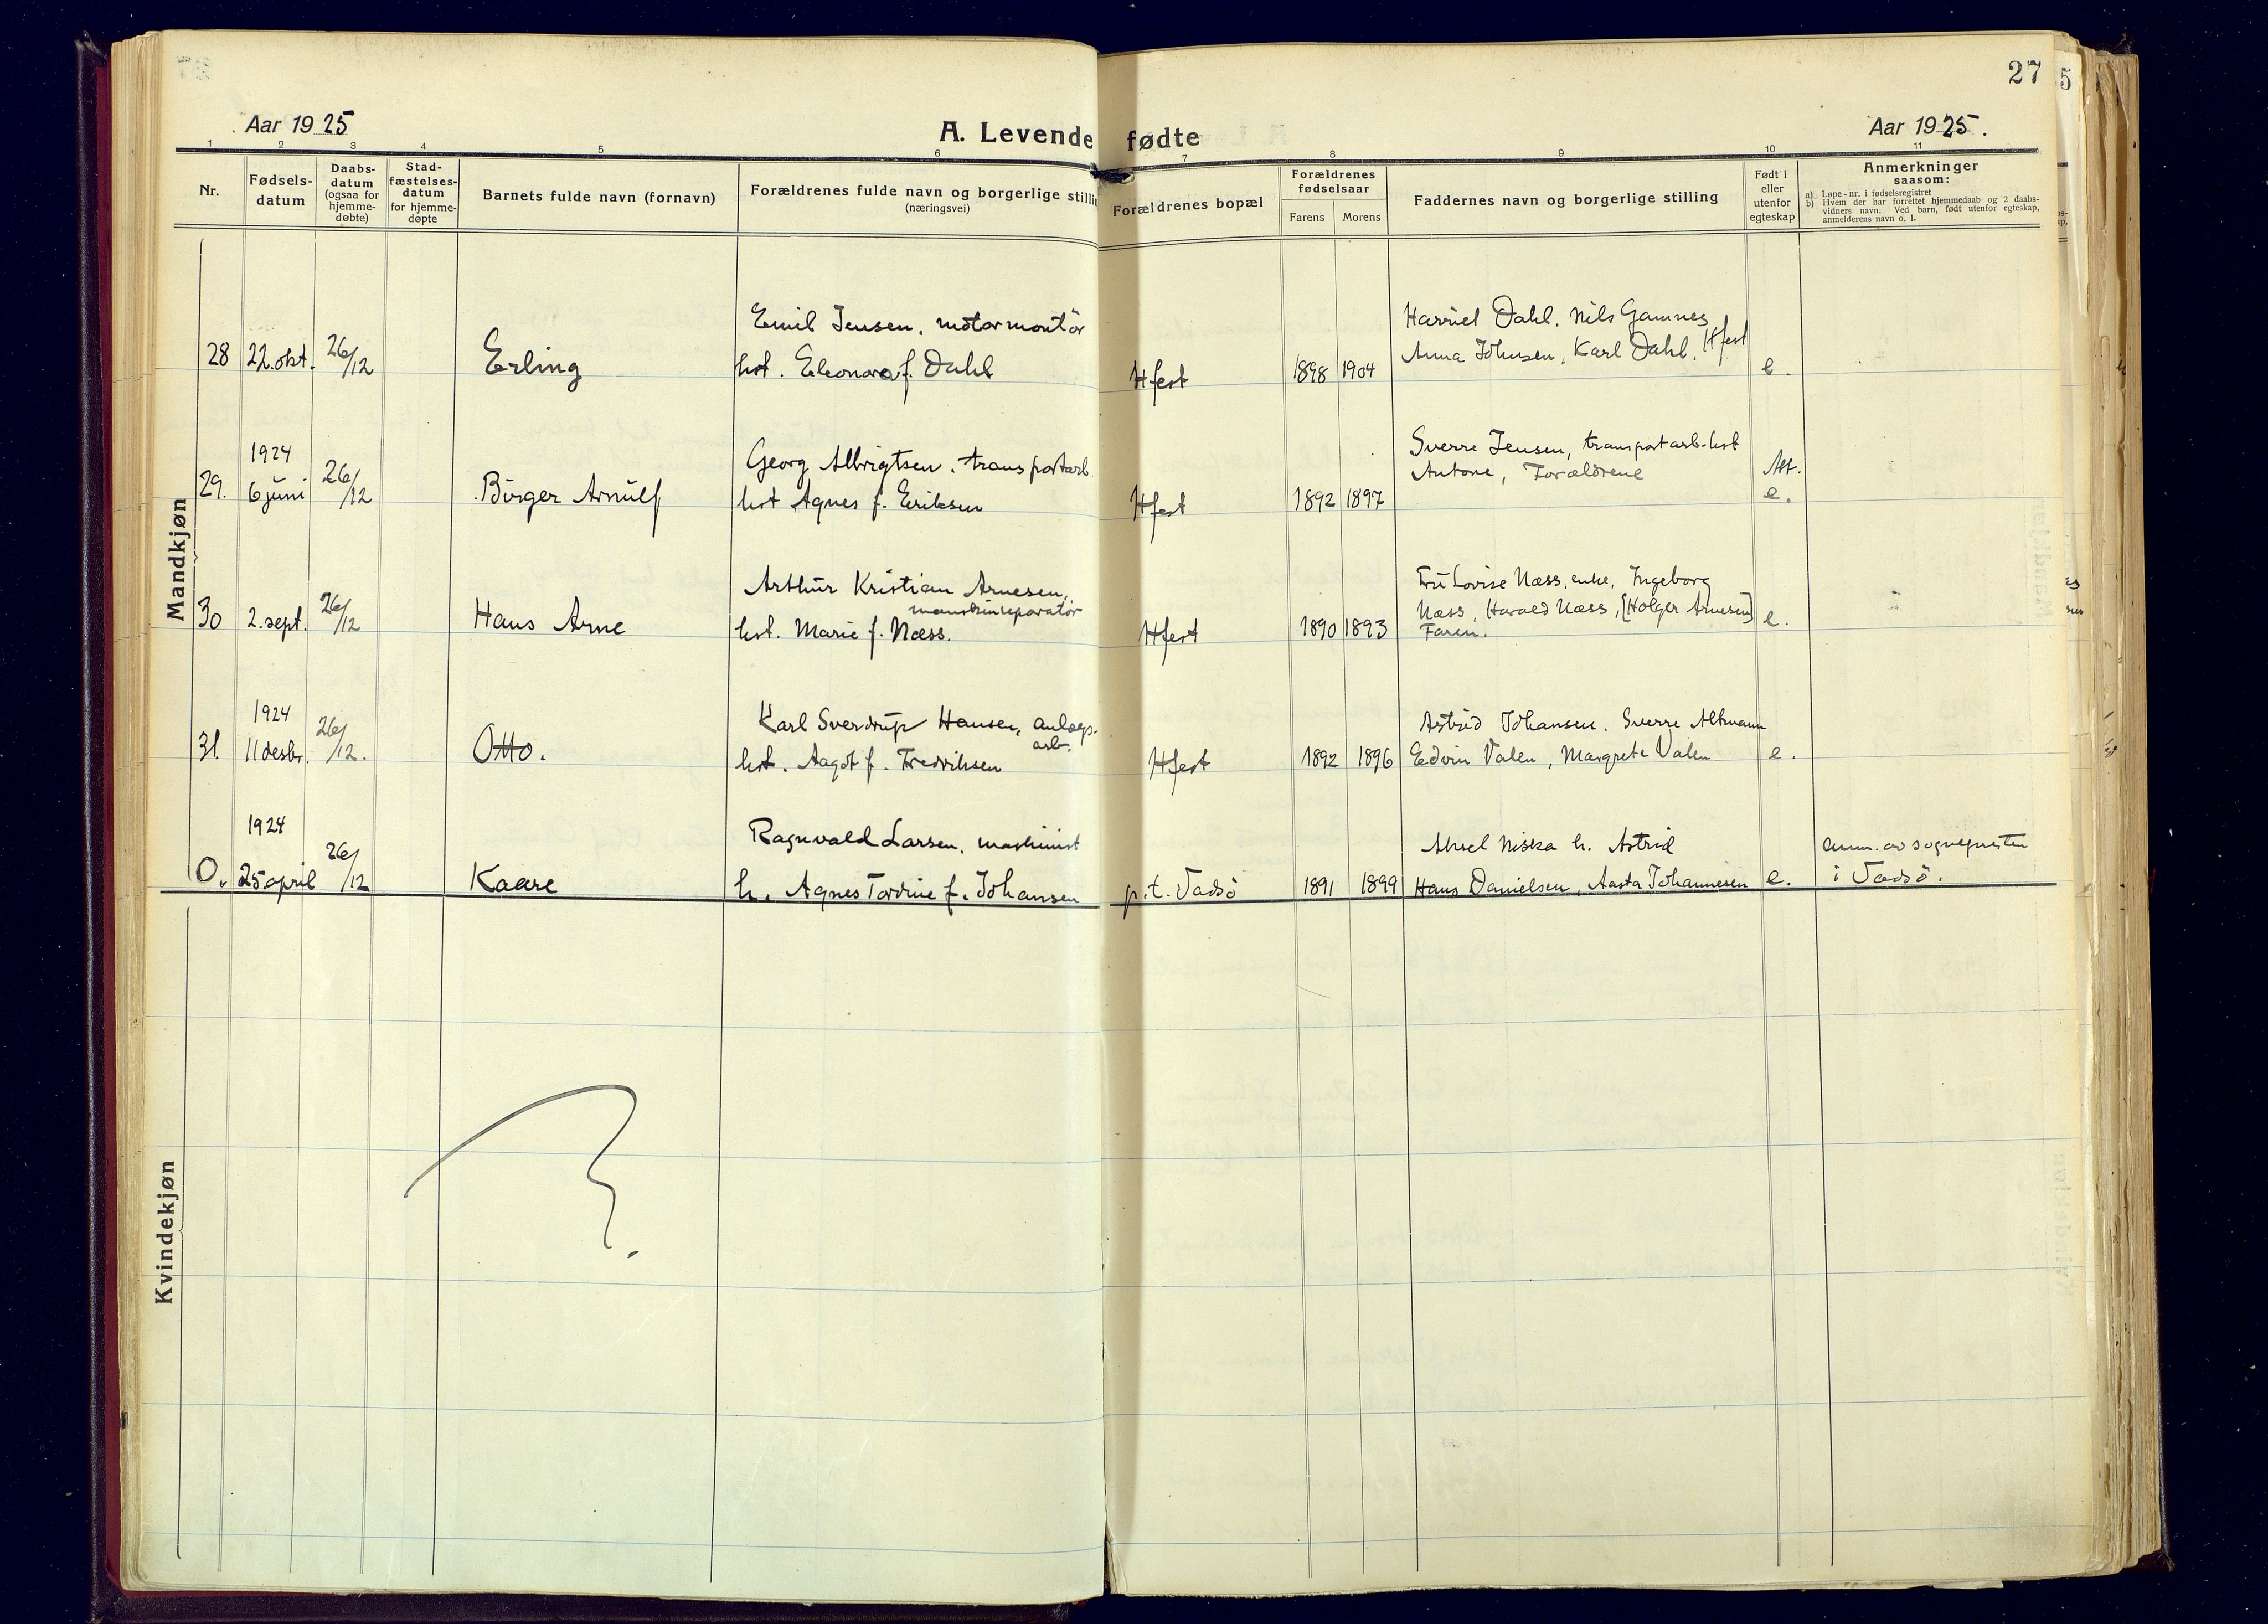 27
Aar 1925
A. Levende fødte
Aar 1925.
1 2 3 4 5 6 7 8 9 10 11
Nr.
Fødsels-
datum
Daabs-
datum
(ogsaa for
hjemme-
døbte)
Stad-
fæstelses-
datum
for hjemme-
døpte
Barnets fulde navn (fornavn)
Forældrenes fulde navn og borgerlige stillin
(næringsvei)
Forældrenes bopæl
Forældrenes
fødselsaar
Farens Morens
Faddernes navn og borgerlige stilling
Født i
eller
utenfor
egteskap
Anmerkninger
saasom:
a) Løpe-nr. i fødselsregistret
b) Hvem der har forrettet hjemmedaab og 2 daabs-
vidners navn. Ved barn, født utenfor egteskap,
anmelderens navn o. l.
Mandkjøn
Emil Jensen, motormontör
Harriet Dahl. Nils Gamnes
28 22. okt. 26/12 Erling hst. Eleonora f. Dahl Hfest 1898 1904 Anna Johnsen, Karl Dahl, Hfest e.
1924
Georg Albrigtsen. transportarb.
Sverre Jensen, transportarb. hst
29. 6 juni 26/12 Birger Arnulf hst Agnes f. Eriksen Hfest 1892 1897 Antone, Forældrene Alt. e.
Arthur Kristian Arnesen,
maskinreparatör
Fru Lovise Næss, enke, Ingeborg
30 2. sept. 26/12 Hans Arne hst. Marie f. Næss. Hfest 1890 1893 Næss, Harald Næss, [Holger Arnesen] e.
Faren.
1924
Karl Sverdrup Hansen, anlægs-
arb.
Astrid Johansen. Sverre Altmann
31. 11 desbr. 26/12. Otto. hst. Aagot f. Fredriksen Hfest 1892 1896 Edvin Valen, Margrete Valen e.
1924
Ragnvald Larsen, maskinist
Aksel Niska h. Astrid
anm. av sognepresten
0. 25 april 26/12 Kaare h. Agnes Tordine f. Johansen p.t. Vadsö 1891 1899 Hans Danielsen, Aasta Johannesen e. i Vadsö.
Kvindekjøn